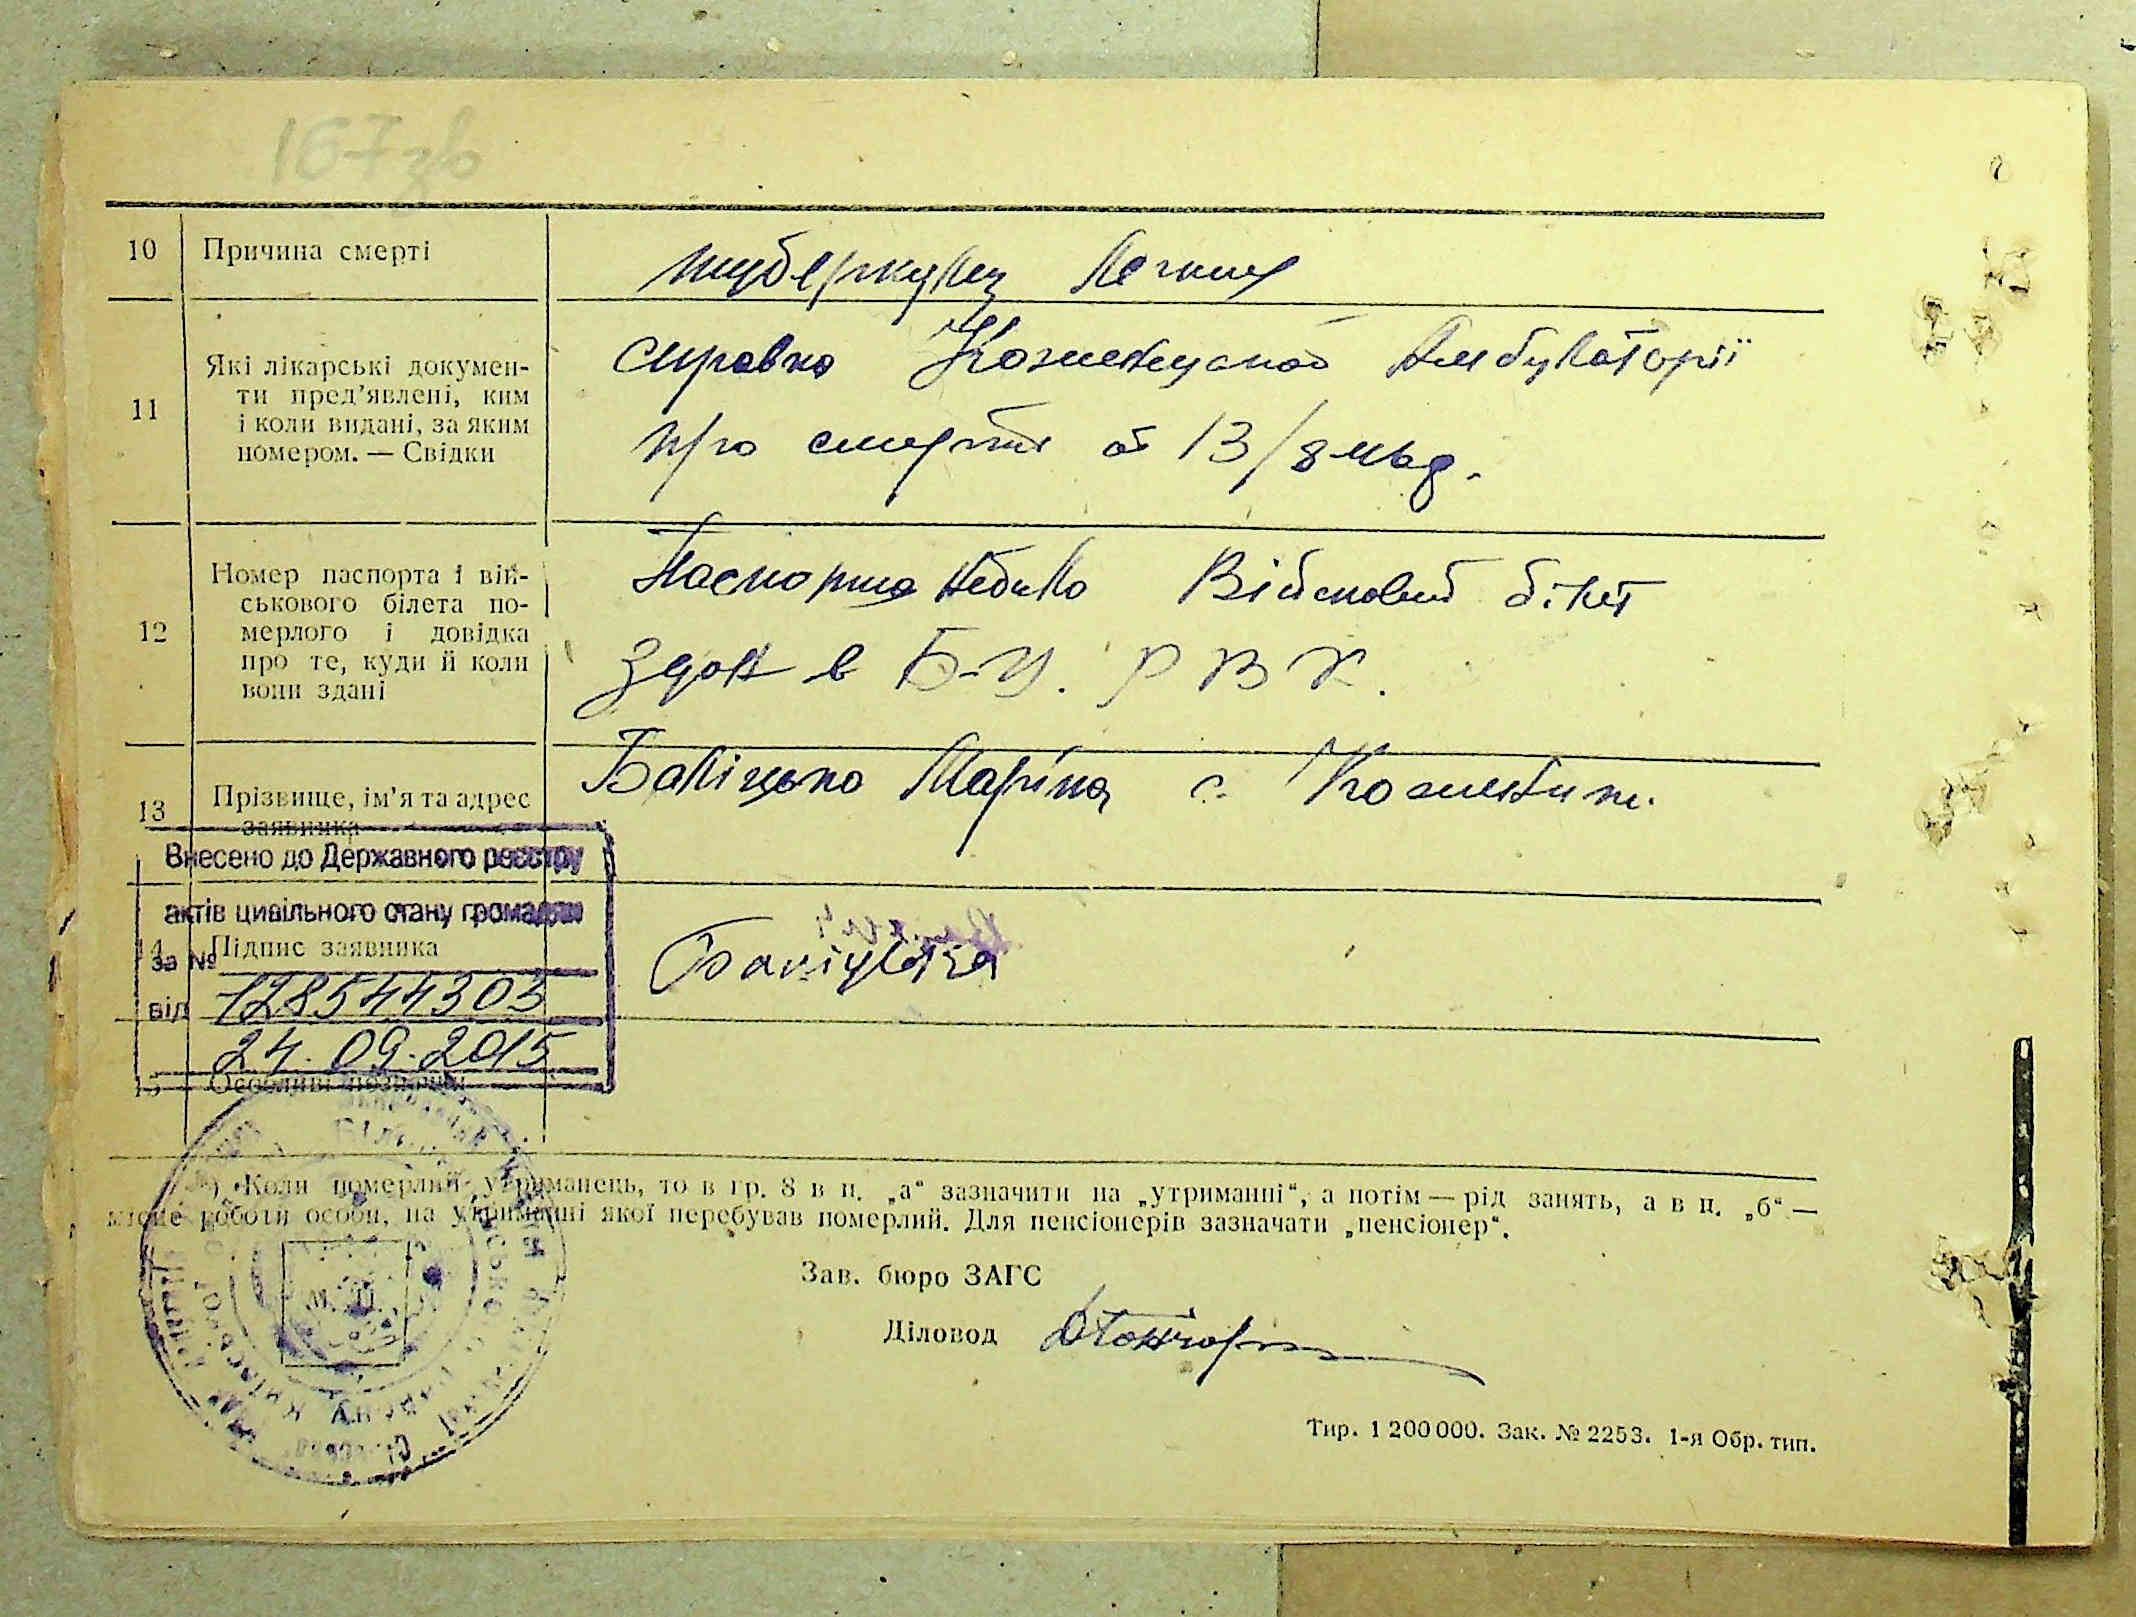 167 зв
10 Причина смерті туберкульоз легких
11 Які лікарські докумен-
ти пред’явлені, ким
і коли видані, за яким
номером. — Свідки
справка Амбулаторії
про смерть от 13/8
12 Номер паспорта і вій-
ськового білета по-
мерлого і довідка
про те, куди й коли
вони здані
Паспорта небуло Військовий білет
здан в Б-Ц. РВК.
13 Прізвище, ім’я та адрес
заявника
Баліцька Маріна с.
Внесено до Державного реєстру
актів цивільного стану громадян
14 Підпис заявника Баліцька
за №
128544303
від
24.09.2015
15 Особливі
*) Коли померлий утриманець, то в гр. 8 в п. „а“ зазначити на „утриманні“, а потім — рід занять, а в п. „б“ —
місце роботи особи, на утриманні якої перебував померлий. Для пенсіонерів зазначати „пенсіонер“.
Зав. бюро ЗАГС
М. П.
Діловод
Тир. 1 200 000. Зак. № 2253. 1-я Обр. тип.